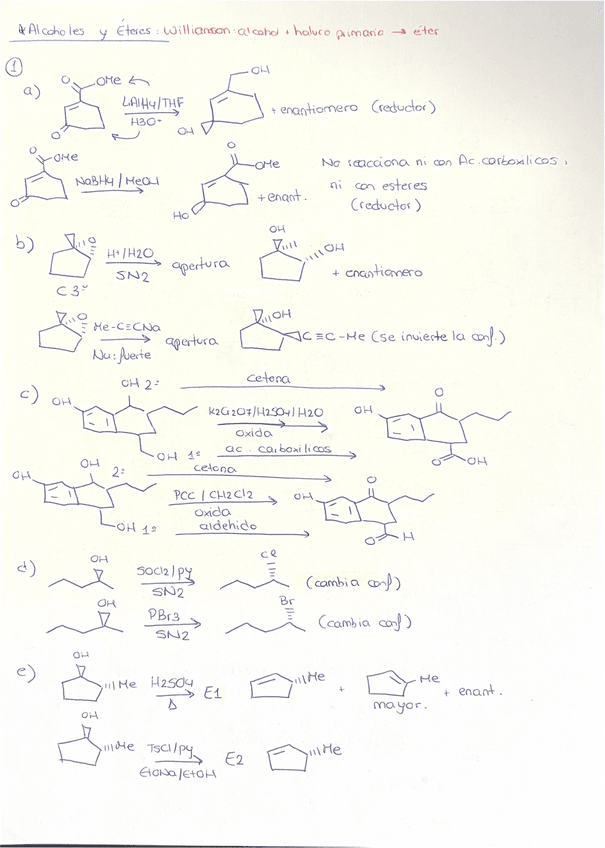 * Alcoholes y Éteres: Williamson: alcohol + haluro primario → eter
1
a) O OMe LiAlH4/THF H3O- OH + enantiomero (reductor)
O OH
O OMe NaBH4/MeOH O OMe + enant. No reacciona ni con Ac. carboxilicos,
O HO ni con esteres
(reductor)
b) O H+/H2O SN2 apertura OH OH + enantiomero
C3º
O Me-C≡CNa Nu: fuerte apertura OH C≡C-Me (se invierte la conf.)
c) OH OH 2º cetona O
K2Cr2O7/H2SO4/H2O OH
oxida
OH 1º ac. carboxilicos O OH
OH OH 2º cetona O
PCC/CH2Cl2 OH
oxida
OH 1º aldehido O H
d) OH SOCl2/py SN2 Cl (cambia conf)
OH PBr3 SN2 Br (cambia conf)
e) OH Me H2SO4 Δ E1 Me + Me + enant.
mayor.
OH Me TsCl/py E2 Me
EtONa/EtOH